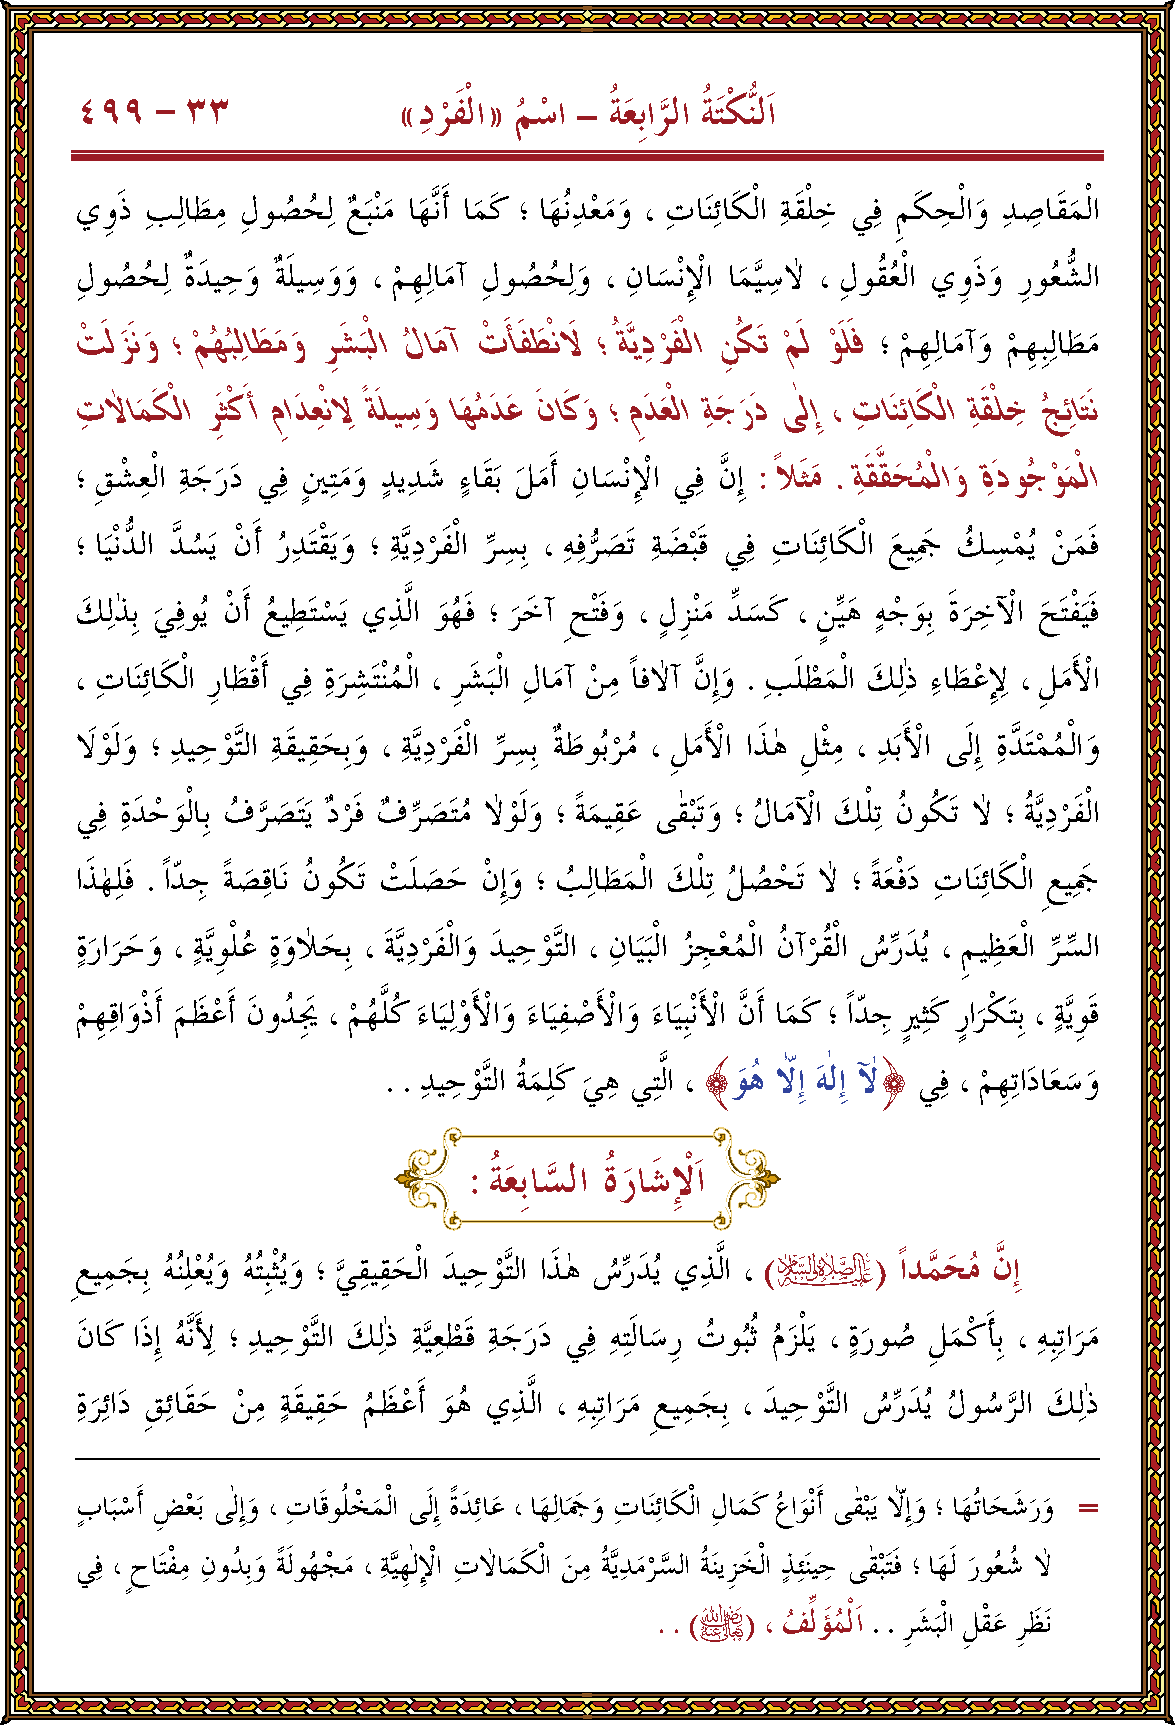 اَلنُّكْتَةُ الرَّابِعَةُ – اسْمُ «الْفَرْدِ» ٣٣ – ٤٩٩
الْمَقَاصِدِ وَالْحِكَمِ فِي خِلْقَةِ الْكَائِنَاتِ ، وَمَعْدِنُهَا ؛ كَمَا أَنَّهَا مَنْبَعٌ لِحُصُولِ مِطَالِبِ ذَوِي
الشُّعُورِ وَذَوِي الْعُقُولِ ، لاٰسِيَّمَا الْإِنْسَانِ ، وَلِحُصُولِ آمَالِهِمْ ، وَوَسِيلَةٌ وَحِيدَةٌ لِحُصُولِ
مَطَالِبِهِمْ وَآمَالِهِمْ ؛ فَلَوْ لَمْ تَكُنِ الْفَرْدِيَّةُ ؛ لَانْطَفَأَتْ آمَالُ الْبَشَرِ وَمَطَالِبُهُمْ ؛ وَنَزَلَتْ
نَتَائِجُ خِلْقَةِ الْكَائِنَاتِ ، إِلٰى دَرَجَةِ الْعَدَمِ ؛ وَكَانَ عَدَمُهَا وَسِيلَةً لِانْعِدَامِ أَكْثَرِ الْكَمَالاٰتِ
الْمَوْجُودَةِ وَالْمُحَقَّقَةِ . مَثَلاً : إِنَّ فِي الْإِنْسَانِ أَمَلَ بَقَاءٍ شَدِيدٍ وَمَتِينٍ فِي دَرَجَةِ الْعِشْقِ ؛
فَمَنْ يُمْسِكُ جَمِيعَ الْكَائِنَاتِ فِي قَبْضَةِ تَصَرُّفِهِ ، بِسِرِّ الْفَرْدِيَّةِ ؛ وَيَقْتَدِرُ أَنْ يَسُدَّ الدُّنْيَا ؛
فَيَفْتَحَ الْآخِرَةَ بِوَجْهٍ هَيِّنٍ ، كَسَدِّ مَنْزِلٍ ، وَفَتْحِ آخَرَ ؛ فَهُوَ الَّذِي يَسْتَطِيعُ أَنْ يُوفِيَ بِذٰلِكَ
الْأَمَلِ ، لِإِعْطَاءِ ذٰلِكَ الْمَطْلَبِ . وَإِنَّ آلاٰفاً مِنْ آمَالِ الْبَشَرِ ، الْمُنْتَشِرَةِ فِي أَقْطَارِ الْكَائِنَاتِ ،
وَالْمُمْتَدَّةِ إِلَى الْأَبَدِ ، مِثْلِ هٰذَا الْأَمَلِ ، مُرْبُوطَةٌ بِسِرِّ الْفَرْدِيَّةِ ، وَبِحَقِيقَةِ التَّوْحِيدِ ؛ وَلَوْلَا
الْفَرْدِيَّةُ ؛ لاٰ تَكُونُ تِلْكَ الْآمَالُ ؛ وَتَبْقٰى عَقِيمَةً ؛ وَلَوْلاٰ مُتَصَرِّفٌ فَرْدٌ يَتَصَرَّفُ بِالْوَحْدَةِ فِي
جَمِيعِ الْكَائِنَاتِ دَفْعَةً ؛ لاٰ تَحْصُلُ تِلْكَ الْمَطَالِبُ ؛ وَإِنْ حَصَلَتْ تَكُونُ نَاقِصَةً جِدّاً . فَلِهٰذَا
السِّرِّ الْعَظِيمِ ، يُدَرِّسُ الْقُرْآنُ الْمُعْجِزُ الْبَيَانِ ، التَّوْحِيدَ وَالْفَرْدِيَّةَ ، بِحَلاٰوَةٍ عُلْوِيَّةٍ ، وَحَرَارَةٍ
قَوِيَّةٍ ، بِتَكْرَارٍ كَثِيرٍ جِدّاً ؛ كَمَا أَنَّ الْأَنْبِيَاءَ وَالْأَصْفِيَاءَ وَالْأَوْلِيَاءَ كُلَّهُمْ ، يَجِدُونَ أَعْظَمَ أَذْوَاقِهِمْ
وَسَعَادَاتِهِمْ ، فِي ﴿لاٰۤ إِلٰهَ إِلاّٰ هُوَ﴾ ، الَّتِي هِيَ كَلِمَةُ التَّوْحِيدِ . .
اَلْإِشَارَةُ السَّابِعَةُ :
إِنَّ مُحَمَّداً (عَلَيْهِ الصَّلاَةُ وَالسَّلاَمُ) ، الَّذِي يُدَرِّسُ هٰذَا التَّوْحِيدَ الْحَقِيقِيَّ ؛ وَيُثْبِتُهُ وَيُعْلِنُهُ بِجَمِيعِ
مَرَاتِبِهِ ، بِأَكْمَلِ صُورَةٍ ، يَلْزَمُ ثُبُوتُ رِسَالَتِهِ فِي دَرَجَةِ قَطْعِيَّةِ ذٰلِكَ التَّوْحِيدِ ؛ لِأَنَّهُ إِذَا كَانَ
ذٰلِكَ الرَّسُولُ يُدَرِّسُ التَّوْحِيدَ ، بِجَمِيعِ مَرَاتِبِهِ ، الَّذِي هُوَ أَعْظَمُ حَقِيقَةٍ مِنْ حَقَائِقِ دَائِرَةِ
= وَرَشَحَاتُهَا ؛ وَإِلاّٰ يَبْقٰى أَنْوَاعُ كَمَالِ الْكَائِنَاتِ وَجَمَالِهَا ، عَائِدَةً إِلَى الْمَخْلُوقَاتِ ، وَإِلٰى بَعْضِ أَسْبَابٍ
لاٰ شُعُورَ لَهَا ؛ فَتَبْقٰى حِينَئِذٍ الْخَزِينَةُ السَّرْمَدِيَّةُ مِنَ الْكَمَالاٰتِ الْإِلٰهِيَّةِ ، مَجْهُولَةً وَبِدُونِ مِفْتَاحٍ ، فِي
نَظَرِ عَقْلِ الْبَشَرِ . . اَلْمُؤَلِّفُ ، (رَضِيَ اللهُ تَعَالٰى عَنْهُ) . .